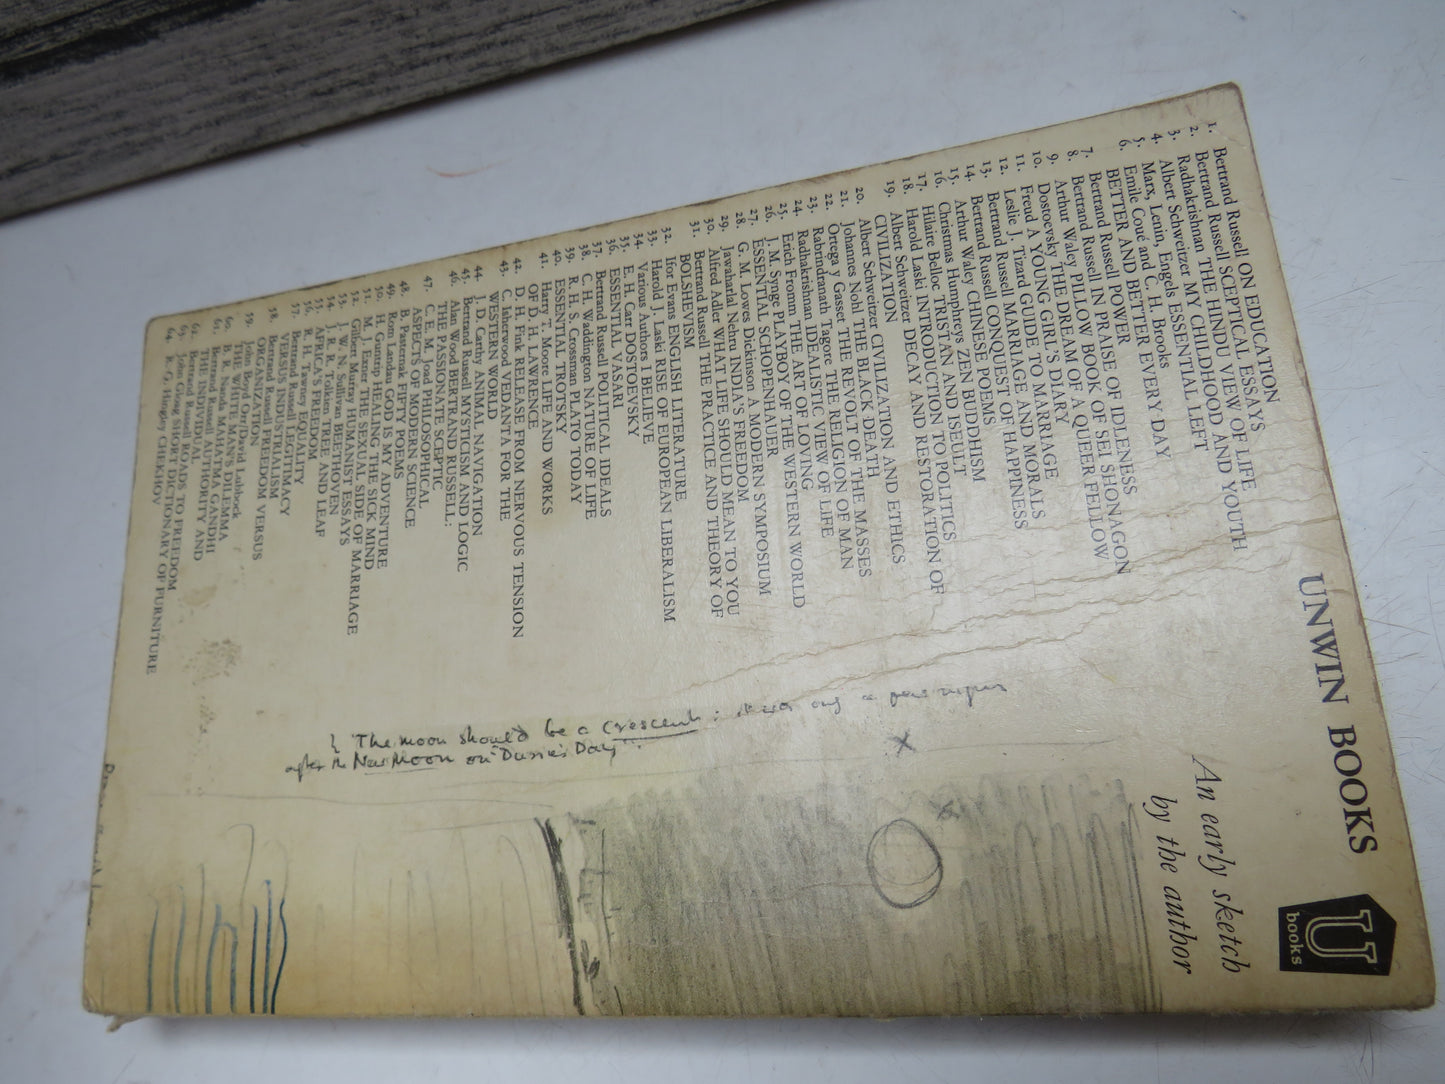 UNWIN BOOKS
U
books
1. Bertrand Russell ON EDUCATION
2. Bertrand Russell SCEPTICAL ESSAYS
3. Radhakrishnan THE HINDU VIEW OF LIFE
4. Albert Schweitzer MY CHILDHOOD AND YOUTH
5. Marx, Lenin, Engels ESSENTIAL LEFT
6. Emile Coué and C. H. Brooks
BETTER AND BETTER EVERY DAY
7. Bertrand Russell POWER
8. Bertrand Russell IN PRAISE OF IDLENESS
9. Arthur Waley PILLOW BOOK OF SEI SHONAGON
10. Dostoevsky THE DREAM OF A QUEER FELLOW
11. Freud A YOUNG GIRL'S DIARY
12. Leslie J. Tizard GUIDE TO MARRIAGE
13. Bertrand Russell MARRIAGE AND MORALS
14. Bertrand Russell CONQUEST OF HAPPINESS
15. Arthur Waley CHINESE POEMS
16. Christmas Humphreys ZEN BUDDHISM
17. Hilaire Belloc TRISTAN AND ISEULT
18. Harold Laski INTRODUCTION TO POLITICS
19. Albert Schweitzer DECAY AND RESTORATION OF
CIVILIZATION
20. Albert Schweitzer CIVILIZATION AND ETHICS
21. Johannes Nohl THE BLACK DEATH
22. Ortega y Gasset THE REVOLT OF THE MASSES
23. Rabindranath Tagore THE RELIGION OF MAN
24. Radhakrishnan IDEALISTIC VIEW OF LIFE
25. Erich Fromm THE ART OF LOVING
26. J. M. Synge PLAYBOY OF THE WESTERN WORLD
27. ESSENTIAL SCHOPENHAUER
28. G. M. Lowes Dickinson A MODERN SYMPOSIUM
29. Jawaharlal Nehru INDIA'S FREEDOM
30. Alfred Adler WHAT LIFE SHOULD MEAN TO YOU
31. Bertrand Russell THE PRACTICE AND THEORY OF
BOLSHEVISM
32. Ifor Evans ENGLISH LITERATURE
33. Harold J. Laski RISE OF EUROPEAN LIBERALISM
34. Various Authors I BELIEVE
35. E. H. Carr DOSTOEVSKY
36. ESSENTIAL VASARI
37. Bertrand Russell POLITICAL IDEALS
38. C. H. Waddington NATURE OF LIFE
39. R. H. S. Crossman PLATO TODAY
40. ESSENTIAL TROTSKY
41. Harry T. Moore LIFE AND WORKS
OF D. H. LAWRENCE
42. D. H. Fink RELEASE FROM NERVOUS TENSION
43. C. Isherwood VEDANTA FOR THE
WESTERN WORLD
44. J. D. Carthy ANIMAL NAVIGATION
45. Bertrand Russell MYSTICISM AND LOGIC
46. Alan Wood BERTRAND RUSSELL:
THE PASSIONATE SCEPTIC
47. C. E. M. Joad PHILOSOPHICAL
ASPECTS OF MODERN SCIENCE
48. B. Pasternak FIFTY POEMS
49. Rom Landau GOD IS MY ADVENTURE
50. H. Guntrip HEALING THE SICK MIND
51. M. Eastrop THE SEXUAL SIDE OF MARRIAGE
52. Gilbert Murray HUMANIST ESSAYS
53. J. W. N. Sullivan BEETHOVEN
54. J. R. R. Tolkien TREE AND LEAF
55. AFRICA'S FREEDOM
56. R. H. Tawney EQUALITY
57. Bertrand Russell LEGITIMACY
VERSUS INDUSTRIALISM
58. Bertrand Russell FREEDOM VERSUS
ORGANIZATION
59. John Boyd Orr/David Lubbock
THE WHITE MAN'S DILEMMA
60. B. R. Nanda MAHATMA GANDHI
61. Bertrand Russell AUTHORITY AND
THE INDIVIDUAL
62. Bertrand Russell ROADS TO FREEDOM
63. John Gloag SHORT DICTIONARY OF FURNITURE
64. R. G. Hingley CHEKHOV
An early sketch
by the author
The moon should be a crescent: it was only a few nights
after the New Moon on "Durin's Day".